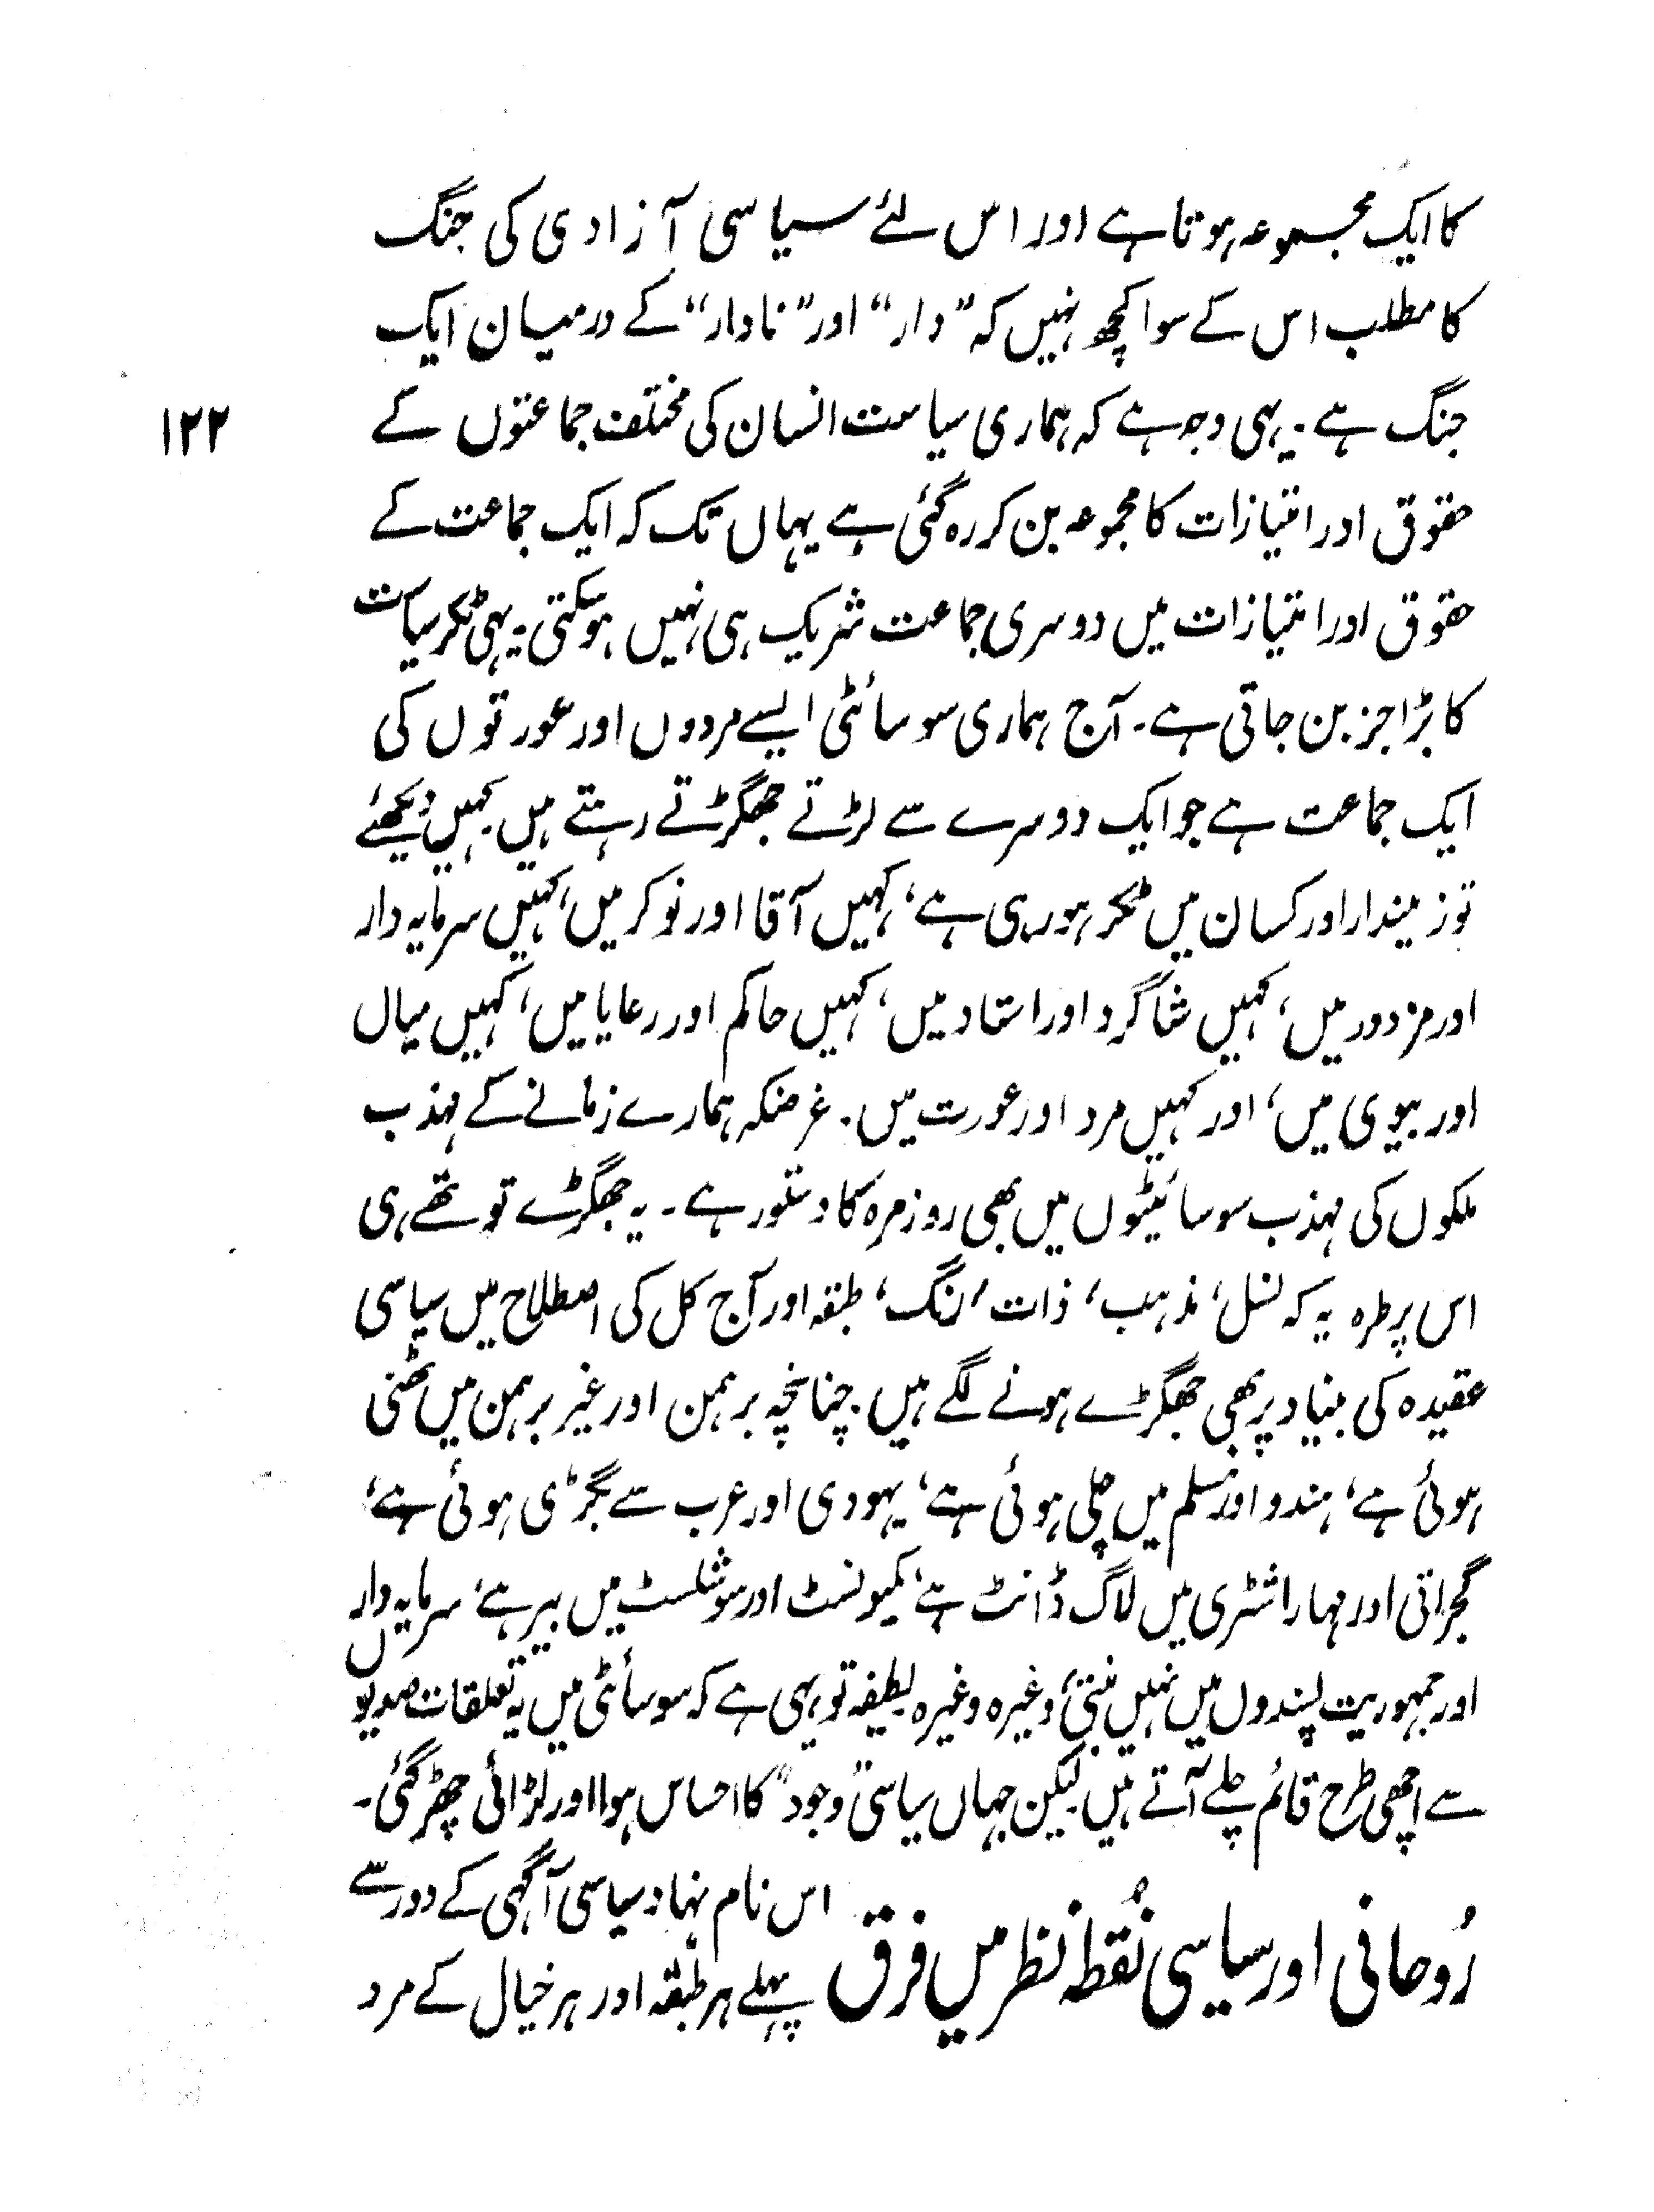 کا ایک مجموعہ ہوتا ہے اور اس لئے سیاسی آزادی کی جنگ
کا مطلب اس کے سوا کچھ نہیں کہ "دار" اور "نادار" کے درمیان ایک
جنگ ہے۔ یہی وجہ ہے کہ ہماری سیاست انسان کی مختلف جماعتوں کے
۱۲۲
حقوق اور امتیازات کا مجموعہ بن کر رہ گئی ہے یہاں تک کہ ایک جماعت کے
حقوق اور امتیازات میں دوسری جماعت شریک ہی نہیں ہوسکتی۔ یہی ٹکر سیاست
کا بڑا جز بن جاتی ہے۔ آج ہماری سوسائٹی ایسے مردوں اور عورتوں کی
ایک جماعت ہے جو ایک دوسرے سے لڑتے جھگڑتے رہتے ہیں۔ کہیں دیکھئے
تو زمیندار اور کسان میں ٹکر ہو رہی ہے، کہیں آقا اور نوکر میں، کہیں سرمایہ دار
اور مزدور میں، کہیں شاگرد اور استاد میں، کہیں حاکم اور رعایا میں، کہیں میاں
اور بیوی میں، اور کہیں مرد اور عورت میں۔ غرضکہ ہمارے زمانے کے مہذب
ملکوں کی مہذب سوسائٹیوں میں بھی روزمرہ کا دستور ہے۔ یہ جھگڑے تو تھے ہی
اس پر طرہ یہ کہ نسل، مذہب، ذات، رنگ، طبقہ اور آج کل کی اصطلاح میں سیاسی
عقیدہ کی بنیاد پر بھی جھگڑے ہونے لگے ہیں۔ چنانچہ برہمن اور غیر برہمن میں ٹھنی
ہوئی ہے، ہندو اور مسلم میں چلی ہوئی ہے، یہودی اور عرب سے بگڑی ہوئی ہے،
گجراتی اور مہاراشٹری میں لاگ ڈانٹ ہے، کمیونسٹ اور سوشلسٹ میں بیر ہے، سرمایہ دار
اور جمہوریت پسندوں میں نہیں بنتی، وغیرہ وغیرہ۔ لطیفہ تو یہی ہے کہ سوسائٹی میں یہ تعلقات صدیوں
سے اچھی طرح قائم چلے آتے ہیں۔ لیکن جہاں سیاسی "وجود" کا احساس ہوا اور لڑائی چھڑ گئی۔
رُوحانی اور سیاسی نُقطۂ نظر میں فرق
اس نام نہاد سیاسی آگہی کے دور سے
پہلے ہر طبقہ اور ہر خیال کے مرد